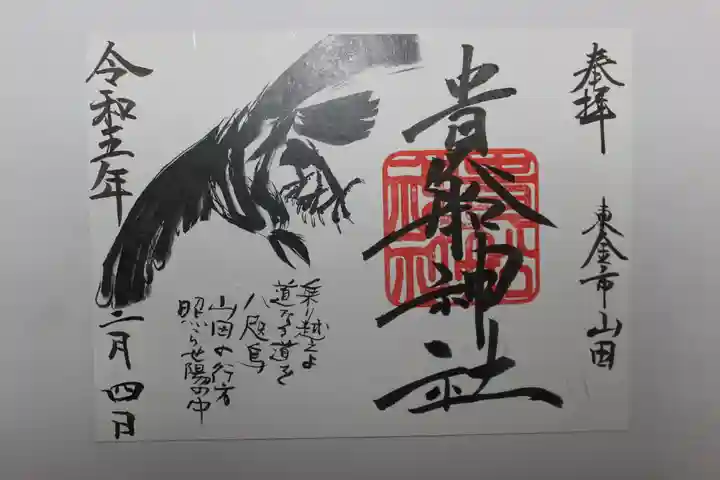 奉拝
東金市山田
貴舩神社
乗り越えよ
道なき道を
八咫烏
山田の行方
照らせ陽の中
令和五年
二月四日